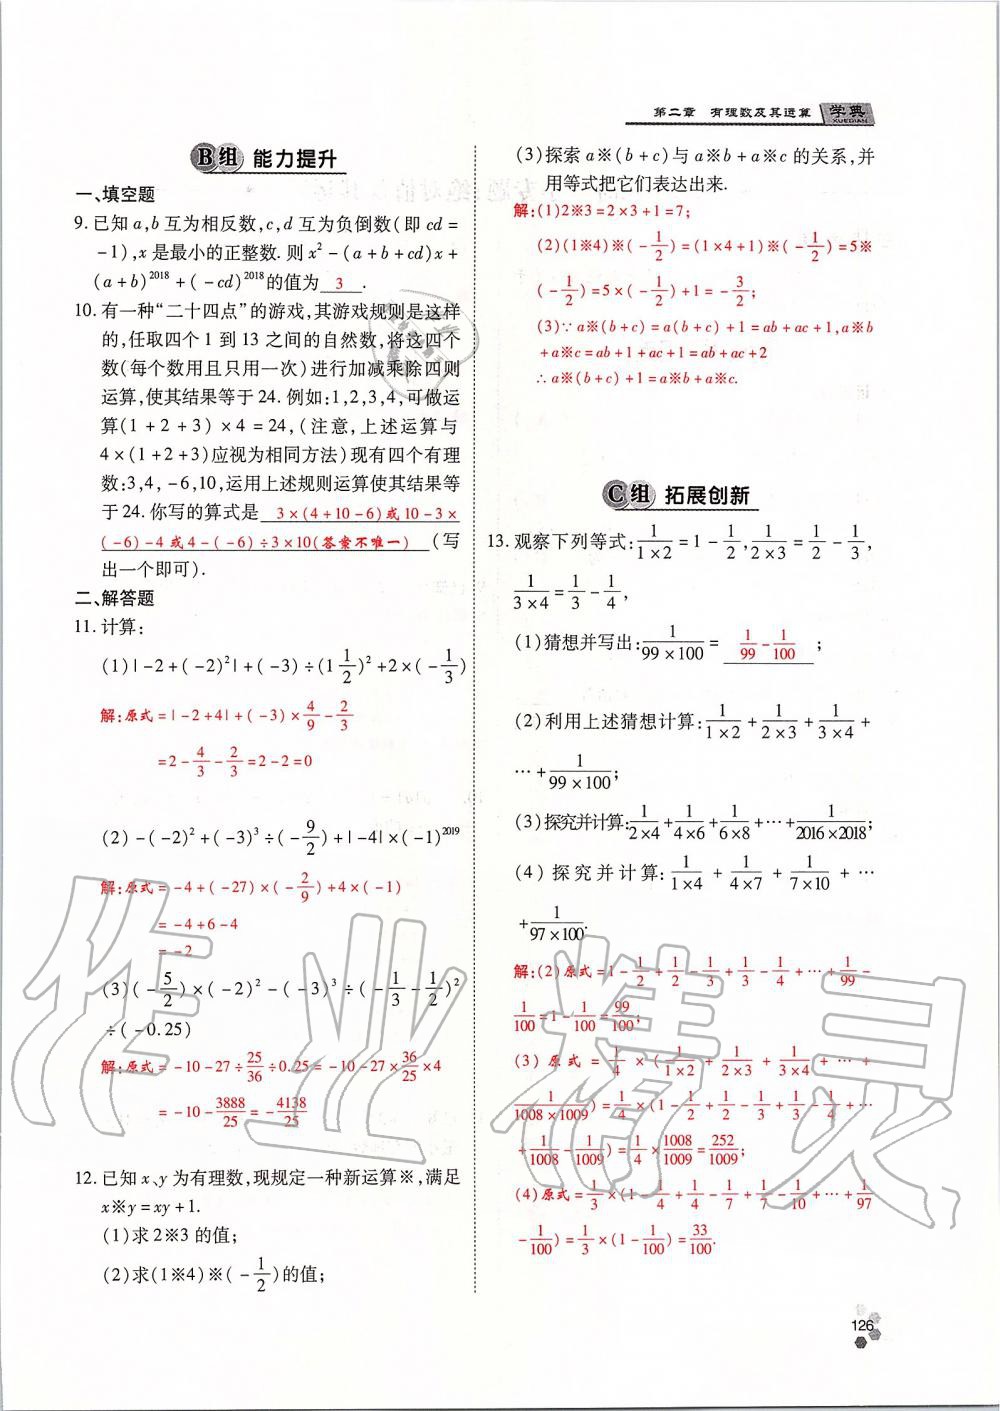 第二章 有理数及其运算 学典
XUEDIAN
B组 能力提升
一、填空题
9. 已知 a,b 互为相反数,c,d 互为负倒数(即 cd =
-1),x 是最小的正整数. 则 x² - (a + b + cd)x +
(a + b)²⁰¹⁸ + ( - cd)²⁰¹⁸的值为 3 .
10. 有一种“二十四点”的游戏,其游戏规则是这样
的,任取四个 1 到 13 之间的自然数,将这四个
数(每个数用且只用一次)进行加减乘除四则
运算,使其结果等于 24. 例如:1,2,3,4,可做运
算(1 + 2 + 3) × 4 = 24,(注意,上述运算与
4 × (1 + 2 + 3)应视为相同方法)现有四个有理
数:3,4, -6,10,运用上述规则运算使其结果等
于 24. 你写的算式是 3 × (4 + 10 - 6)或 10 - 3 ×
( - 6) - 4 或 4 - ( - 6) ÷ 3 × 10(答案不唯一) (写
出一个即可).
二、解答题
11. 计算:
(1)| - 2 + ( - 2)²| + ( - 3) ÷ (1 1/2)² + 2 × ( - 1/3)
解:原式 = | - 2 + 4| + ( - 3) × 4/9 - 2/3
= 2 - 4/3 - 2/3 = 2 - 2 = 0
(2) - ( - 2)² + ( - 3)³ ÷ ( - 9/2) + | - 4| × ( - 1)²⁰¹⁹
解:原式 = - 4 + ( - 27) × ( - 2/9) + 4 × ( - 1)
= - 4 + 6 - 4
= - 2
(3)( - 5/2) × ( - 2)² - ( - 3)³ ÷ ( - 1/3 - 1/2)²
÷ ( - 0.25)
解:原式 = - 10 - 27 ÷ 25/36 ÷ 0.25 = - 10 - 27 × 36/25 × 4
= - 10 - 3888/25 = - 4138/25
12. 已知 x、y 为有理数,现规定一种新运算※,满足
x※y = xy + 1.
(1)求 2※3 的值;
(2)求(1※4)※( - 1/2)的值;
(3)探索 a※(b + c)与 a※b + a※c 的关系,并
用等式把它们表达出来.
解:(1)2※3 = 2 × 3 + 1 = 7;
(2)(1※4)※( - 1/2) = (1 × 4 + 1)※( - 1/2) = 5※
( - 1/2) = 5 × ( - 1/2) + 1 = - 3/2;
(3)∵ a※(b + c) = a(b + c) + 1 = ab + ac + 1,a※b
+ a※c = ab + 1 + ac + 1 = ab + ac + 2
∴ a※(b + c) + 1 = a※b + a※c.
C组 拓展创新
13. 观察下列等式: 1/(1 × 2) = 1 - 1/2, 1/(2 × 3) = 1/2 - 1/3,
1/(3 × 4) = 1/3 - 1/4,
(1)猜想并写出: 1/(99 × 100) = 1/99 - 1/100 ;
(2)利用上述猜想计算: 1/(1 × 2) + 1/(2 × 3) + 1/(3 × 4) +
… + 1/(99 × 100);
(3)探究并计算: 1/(2 × 4) + 1/(4 × 6) + 1/(6 × 8) + … + 1/(2016 × 2018);
(4)探究并计算: 1/(1 × 4) + 1/(4 × 7) + 1/(7 × 10) + … 
+ 1/(97 × 100).
解:(2)原式 = 1 - 1/2 + 1/2 - 1/3 + 1/3 - 1/4 + … + 1/99 -
1/100 = 1 - 1/100 = 99/100;
(3)原式 = 1/4 × (1/(1 × 2) + 1/(2 × 3) + 1/(3 × 4) + … +
1/(1008 × 1009)) = 1/4 × (1 - 1/2 + 1/2 - 1/3 + 1/3 - 1/4 + …
+ 1/1008 - 1/1009) = 1/4 × 1008/1009 = 252/1009;
(4)原式 = 1/3 × (1 - 1/4 + 1/4 - 1/7 + 1/7 - 1/10 + … + 1/97
- 1/100) = 1/3 × (1 - 1/100) = 33/100.
126
作业精灵